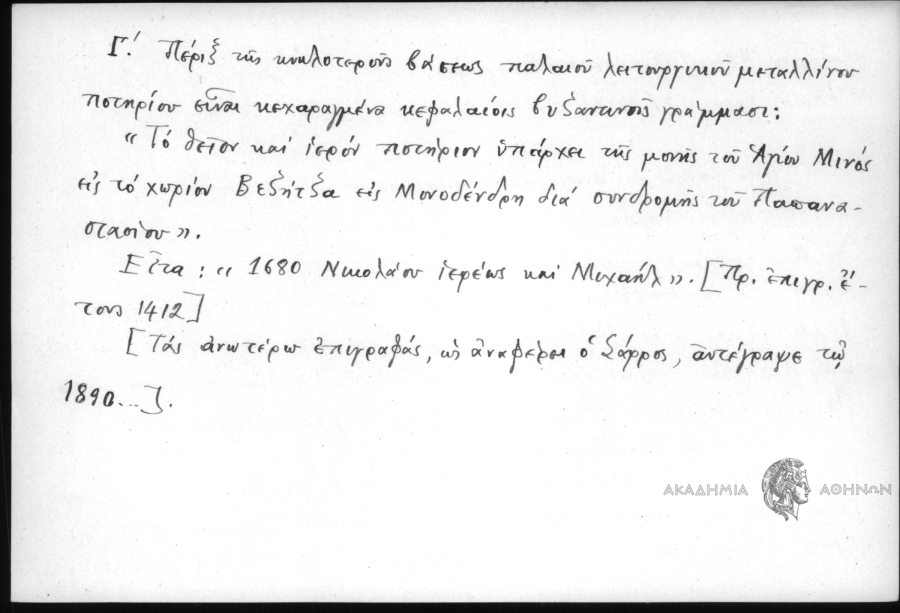 Γ.' Πέριξ τῆς κυκλοτεροῦς βάσεως παλαιοῦ λειτουργικοῦ μεταλλίνου
ποτηρίου εἶναι κεχαραγμένα κεφαλαίοις βυζαντινοῖς γράμμασι:
"Τό θεῖον καί ἱερόν ποτήριον ὑπάρχει τῆς μονῆς τοῦ Ἁγίου Μινᾶ
εἰς τό χωρίον Βεζήτζα εἰς Μονοδένδρη διά συνδρομῆς τοῦ Παπανα-
στασίου".
Εἶτα: "1680 Νικολάου ἱερέως καί Μιχαήλ". [Πρ. ἐπιγρ. ἔ-
τους 1412]
[Τάς ἀνωτέρω ἐπιγραφάς, ὡς ἀναφέρει ὁ Σάρρος, ἀντέγραψε τῷ
1890...].
ΑΚΑΔΗΜΙΑ ΑΘΗΝΩΝ